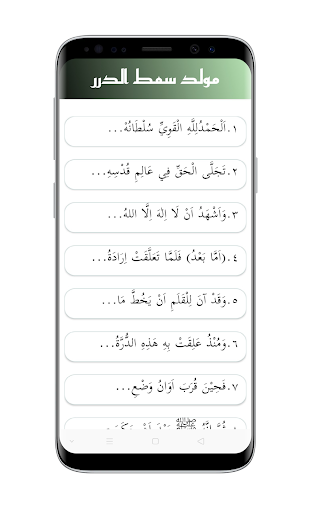 مولد سمط الدرر
١.اَلْحَمْدُلِلَّهِ الْقَوِيِّ سُلْطَانُهْ...
٢.تَجَلَّى الْحَقُّ فِي عَالَمِ قُدْسِهِ...
٣.وَاَشْهَدُ اَنْ لَا اِلٰهَ اِلَّا اللهُ...
٤.(اَمَّا بَعْدُ) فَلَمَّا تَعَلَّقَتْ اِرَادَةُ...
٥.وَقَدْ آنَ لِلْقَلَمِ اَنْ يَخُطَّ مَا...
٦.وَمُنْذُ عَلِقَتْ بِهِ هَذِهِ الدُّرَّةُ...
٧.فَحِيْنَ قَرُبَ اَوَانُ وَضْعِ...